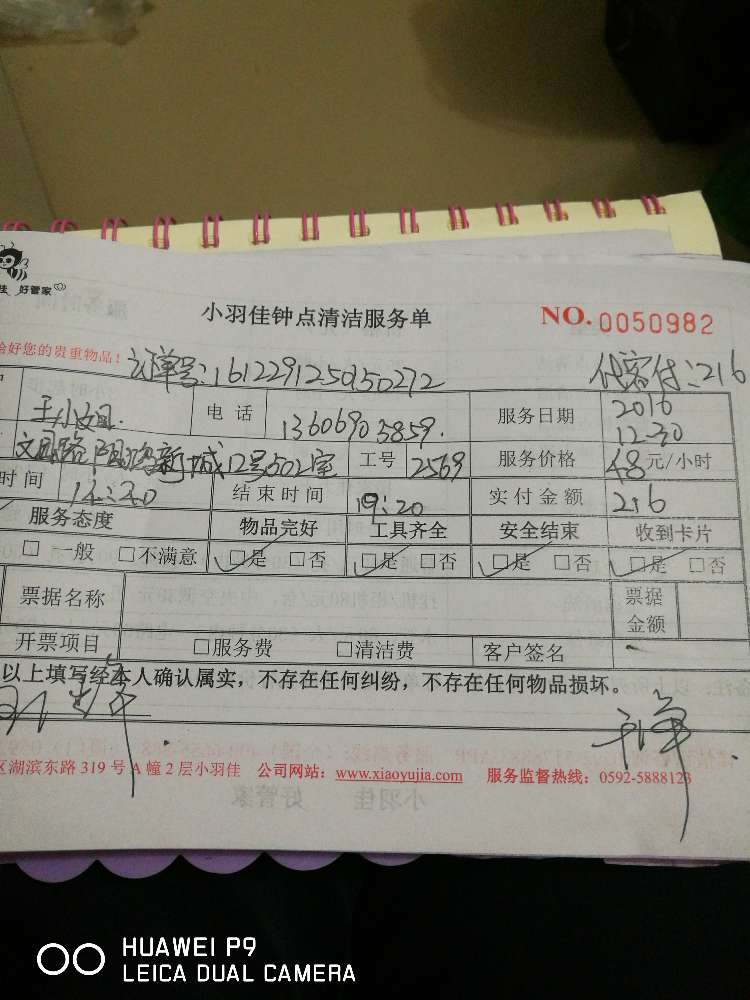 佳 好管家
小羽佳钟点清洁服务单 NO. 0050982
好您的贵重物品! 订单号:1612291250150272 付:216
王小姐. 电话 13606905859. 服务日期 2016 12-30
文园路 新城12号502室 工号 2569 服务价格 48元/小时
时间 14:20 结束时间 19:20 实付金额 216
服务态度 物品完好 工具齐全 安全结束 收到卡片
□ 一般 □不满意 □是 □否 □是 □否 □是 □否 □是 □否
票据名称 票据金额
开票项目 □服务费 □清洁费 客户签名
以上填写经本人确认属实,不存在任何纠纷,不存在任何物品损坏。
区湖滨东路 319 号 A 幢 2 层小羽佳 公司网站:www.xiaoyujia.com 服务监督热线:0592-5888123
HUAWEI P9
LEICA DUAL CAMERA